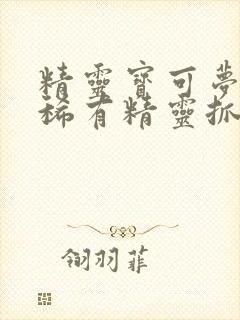 精靈寶可夢
稀有精靈抓
翎羽菲